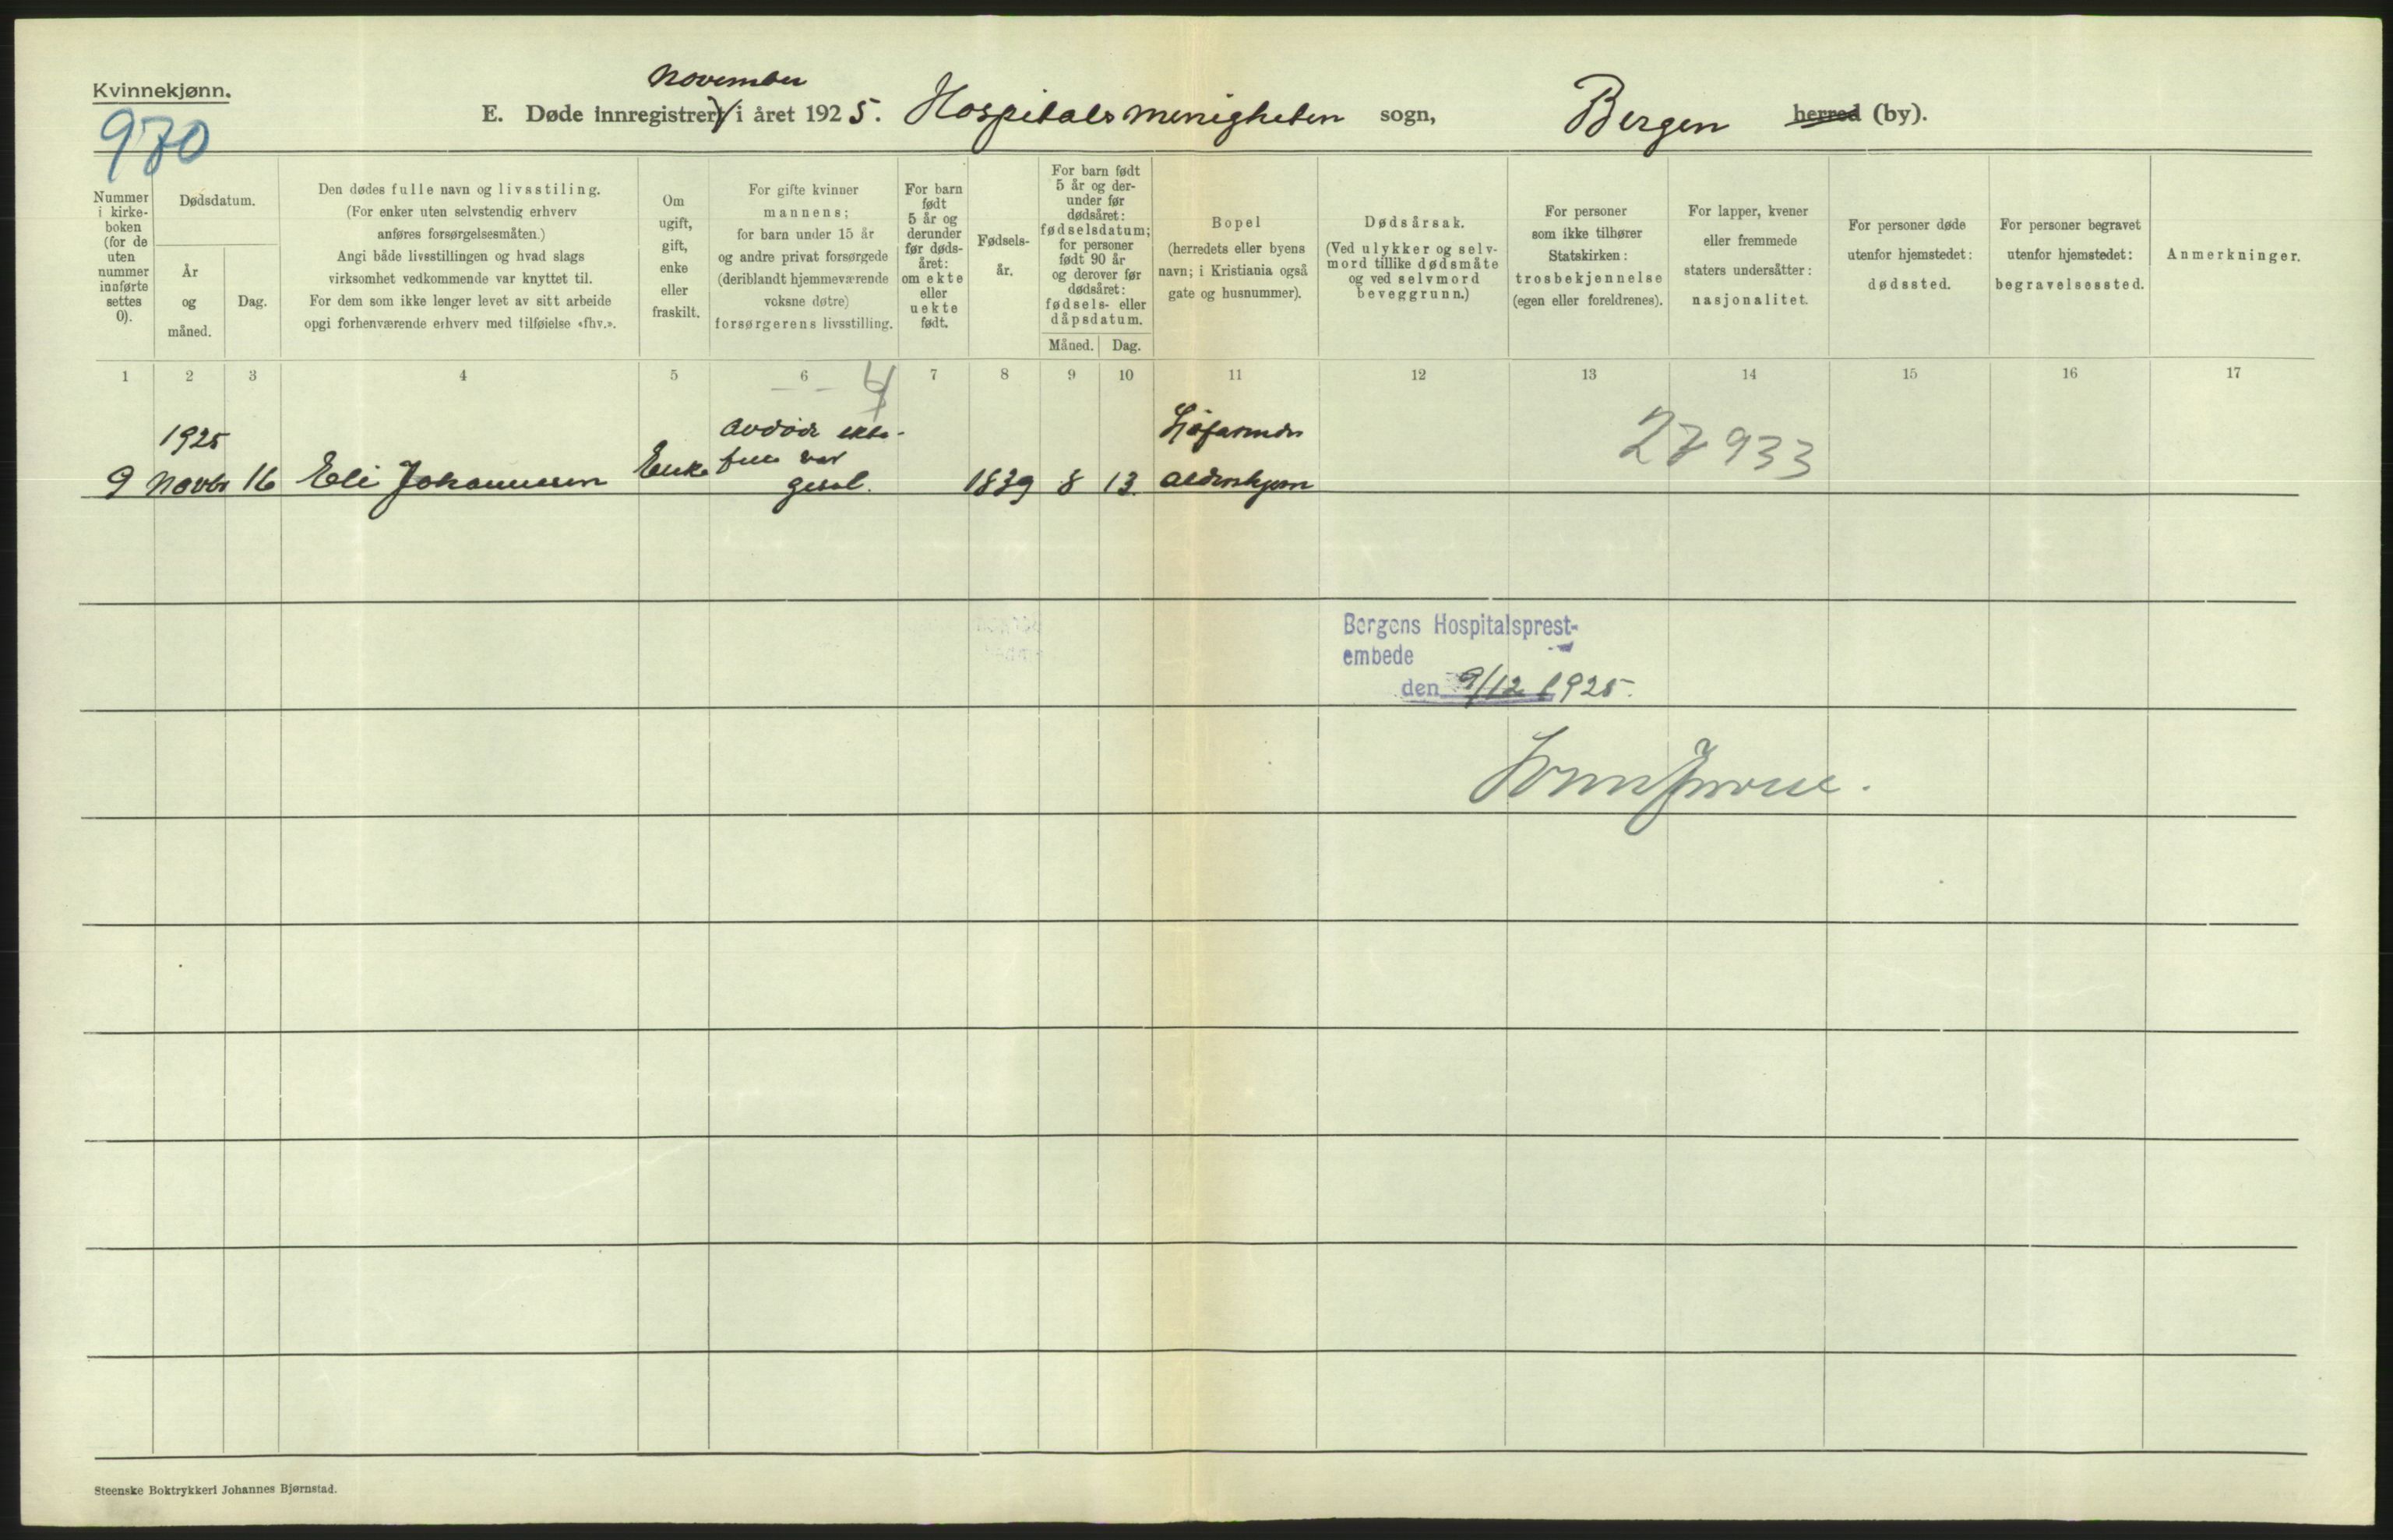 Kvinnekjønn.
980
November
E. Døde innregistrert i året 1925. Hospitalsmenigheten sogn, Bergen herred (by).
Nummer i kirke-boken (for de uten nummer innførte settes 0).
Dødsdatum.
År og måned.
Dag.
Den dødes fulle navn og livsstiling.
(For enker uten selvstendig erhverv
anføres forsørgelsesmåten.)
Angi både livsstillingen og hvad slags
virksomhet vedkommende var knyttet til.
For dem som ikke lenger levet av sitt arbeide
opgi forhenværende erhverv med tilføielse «fhv.».
Om
ugift,
gift,
enke
eller
fraskilt.
For gifte kvinner
mannens;
for barn under 15 år
og andre privat forsørgede
(deriblandt hjemmeværende
voksne døtre)
forsørgerens livsstilling.
For barn
født
5 år og
derunder
før døds-
året:
om ekte
eller
uekte
født.
Fødsels-
år.
For barn født
5 år og der-
under før
dødsåret:
fødselsdatum;
for personer
født 90 år
og derover før
dødsåret:
fødsels- eller
dåpsdatum.
Måned. Dag.
Bopel
(herredets eller byens
navn; i Kristiania også
gate og husnummer).
Dødsårsak.
(Ved ulykker og selv-
mord tillike dødsmåte
og ved selvmord
beveggrunn.)
For personer
som ikke tilhører
Statskirken:
trosbekjennelse
(egen eller foreldrenes).
For lapper, kvener
eller fremmede
staters undersåtter:
nasjonalitet.
For personer døde
utenfor hjemstedet:
dødssted.
For personer begravet
utenfor hjemstedet:
begravelsessted.
Anmerkninger.
1 2 3 4 5 6 7 8 9 10 11 12 13 14 15 16 17
4
1925 avdøde ekte-
Enke felle var
9 Novbr 16 Eli Johannesen 1839 8 13 Alderhjem
27933
Bergens Hospitalsprest-
embede
den 9/12 1925.
Steenske Boktrykkeri Johannes Bjørnstad.